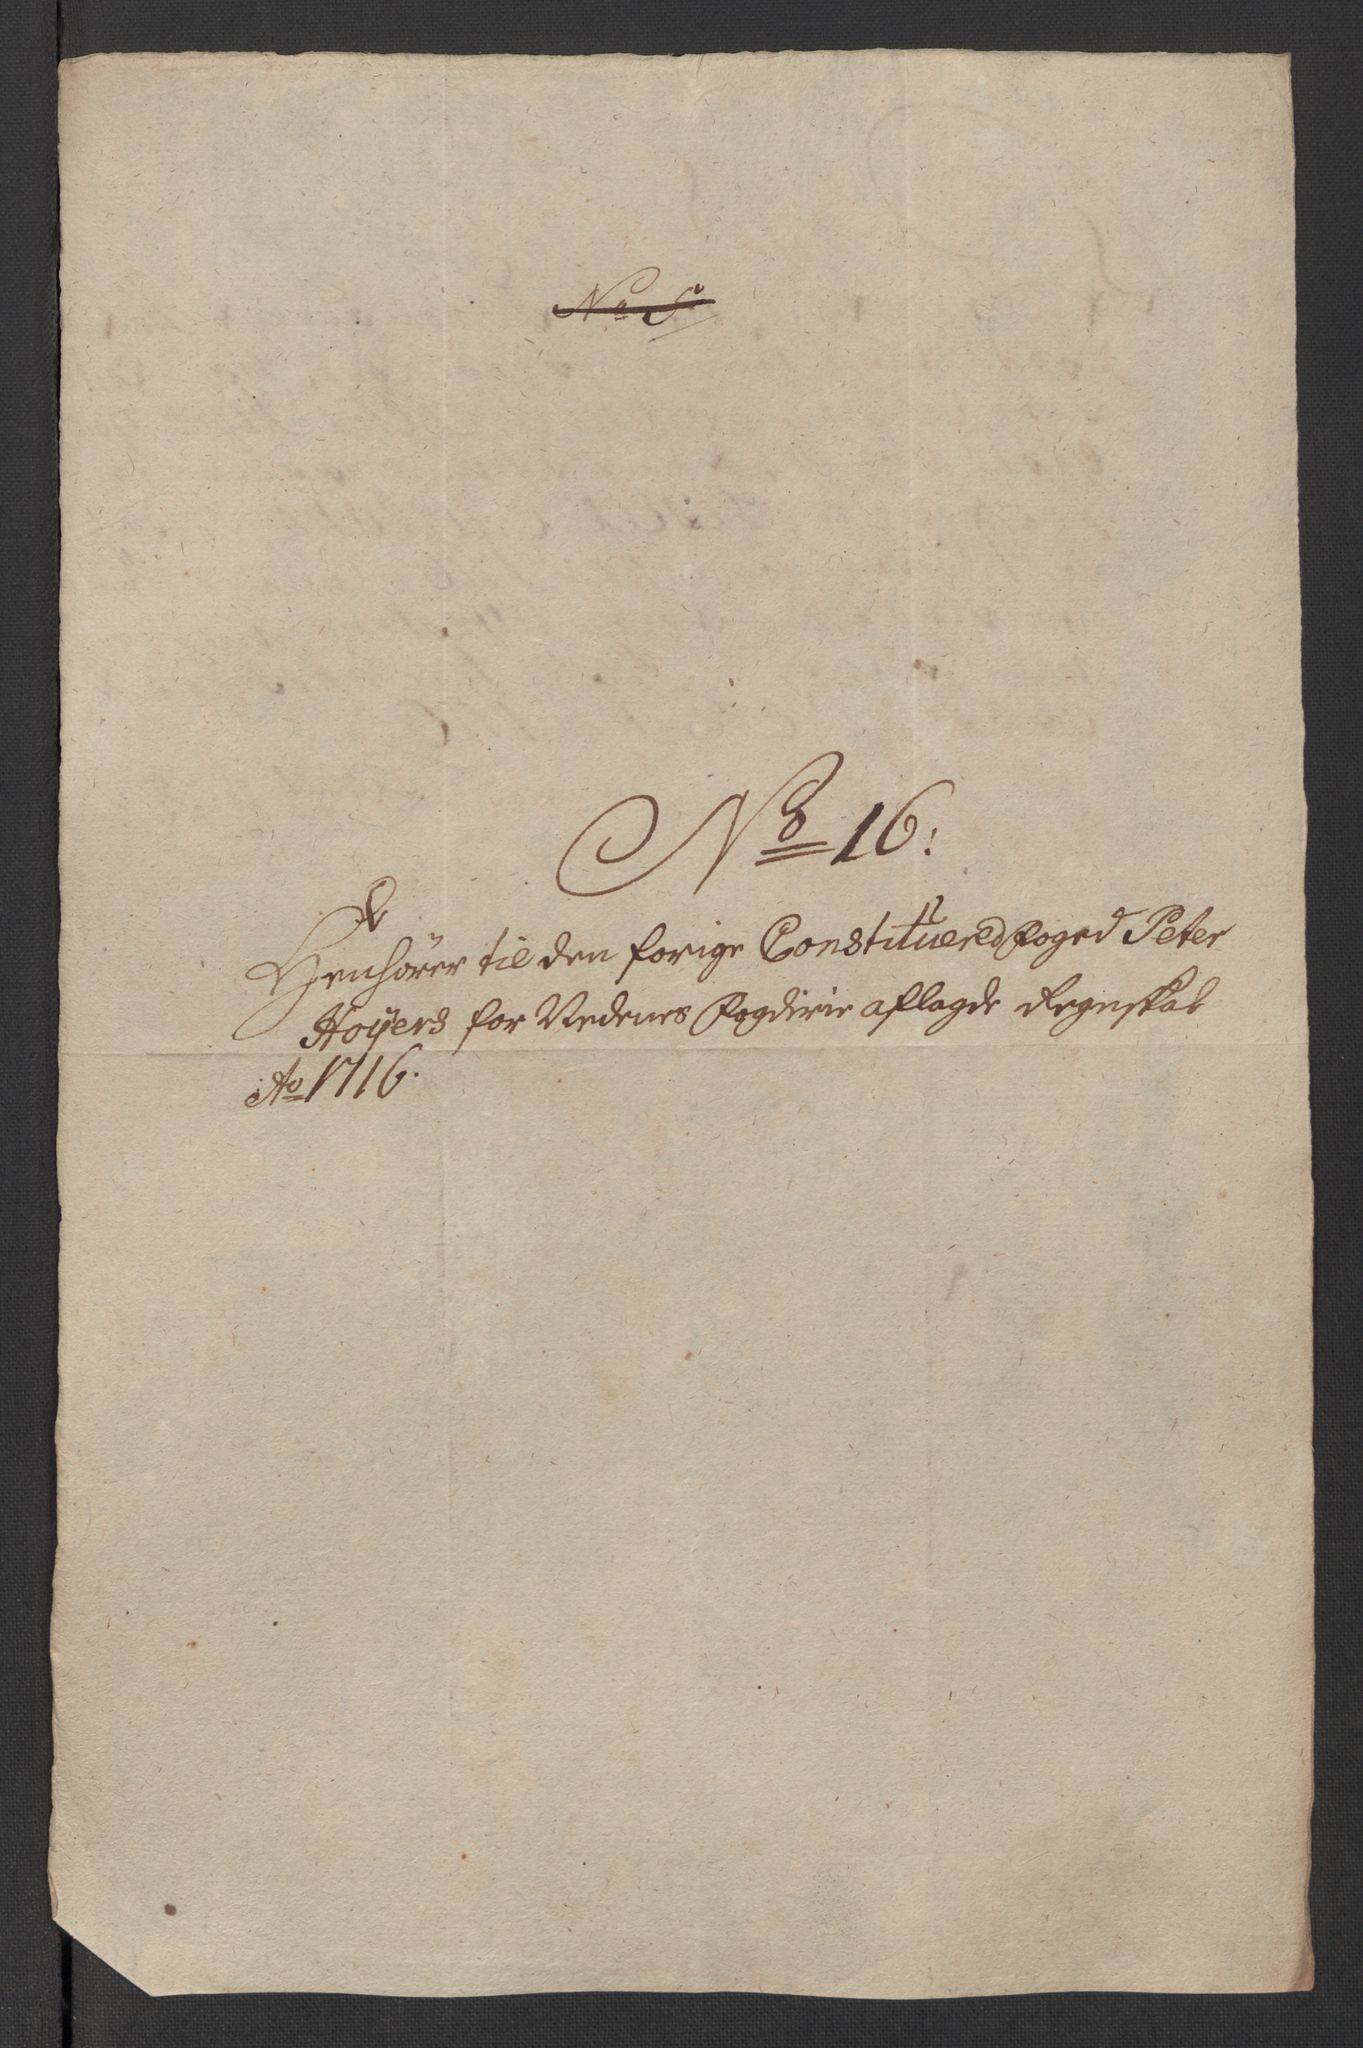 No 5
No 16:
Henhörer til den forige Constituered Foged Peter
Hoÿers for Nedenes Fogderie aflagde Regnskab
Ao 1716.